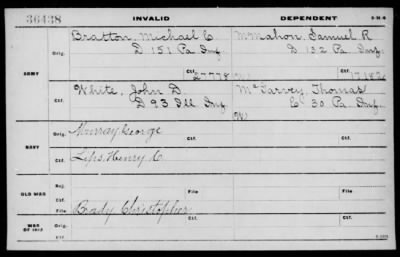 36438 INVALID DEPENDENT 3-31-6
Bratton, Michael C McMahon, Samuel R
Orig. D 151 Pa Inf. D 132 Pa Inf.
ARMY Ctf. 27778 Ctf. 17182
White, John D. McGarvey, Thomas
Orig. D 93 Ill Inf. E 30 Pa Inf.
Ctf. W
Orig. Murray George
NAVY Ctf.
Orig. Lips, Henry C.
Ctf. Ctf.
OLD WAR Rej. File
Ctf. File
File Brady Christopher
WAR OF 1812 Orig.
Ctf. Ctf.